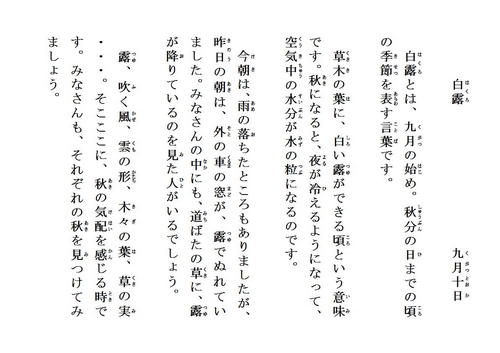 白露
九月十日
白露とは、九月の始め。秋分の日までの頃
の季節を表す言葉です。
草木の葉に、白い露ができる頃という意味
です。秋になると、夜が冷えるようになって、
空気中の水分が水の粒になるのです。
今朝は、雨の落ちたところもありましたが、
昨日の朝は、外の車の窓が、露でぬれてい
ました。みなさんの中にも、道ばたの草に、露
が降りているのを見た人がいるでしょう。
露、吹く風、雲の形、木々の葉、草の実
・・・。そこここに、秋の気配を感じる時で
す。みなさんも、それぞれの秋を見つけてみ
ましょう。